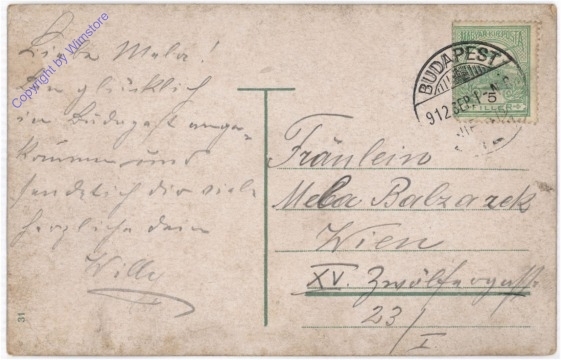 Copyright by Wimstore
Liebe Mela!
Bin glücklich
in Budapest ange-
kommen und
sende ich dir viele
herzliche dein
Willy
31
MAGYAR KIR. POSTA
BUDAPEST
912 SEP.
Fräulein
Mela Balzarek
Wien
XV. Zwölfergasse
23/I